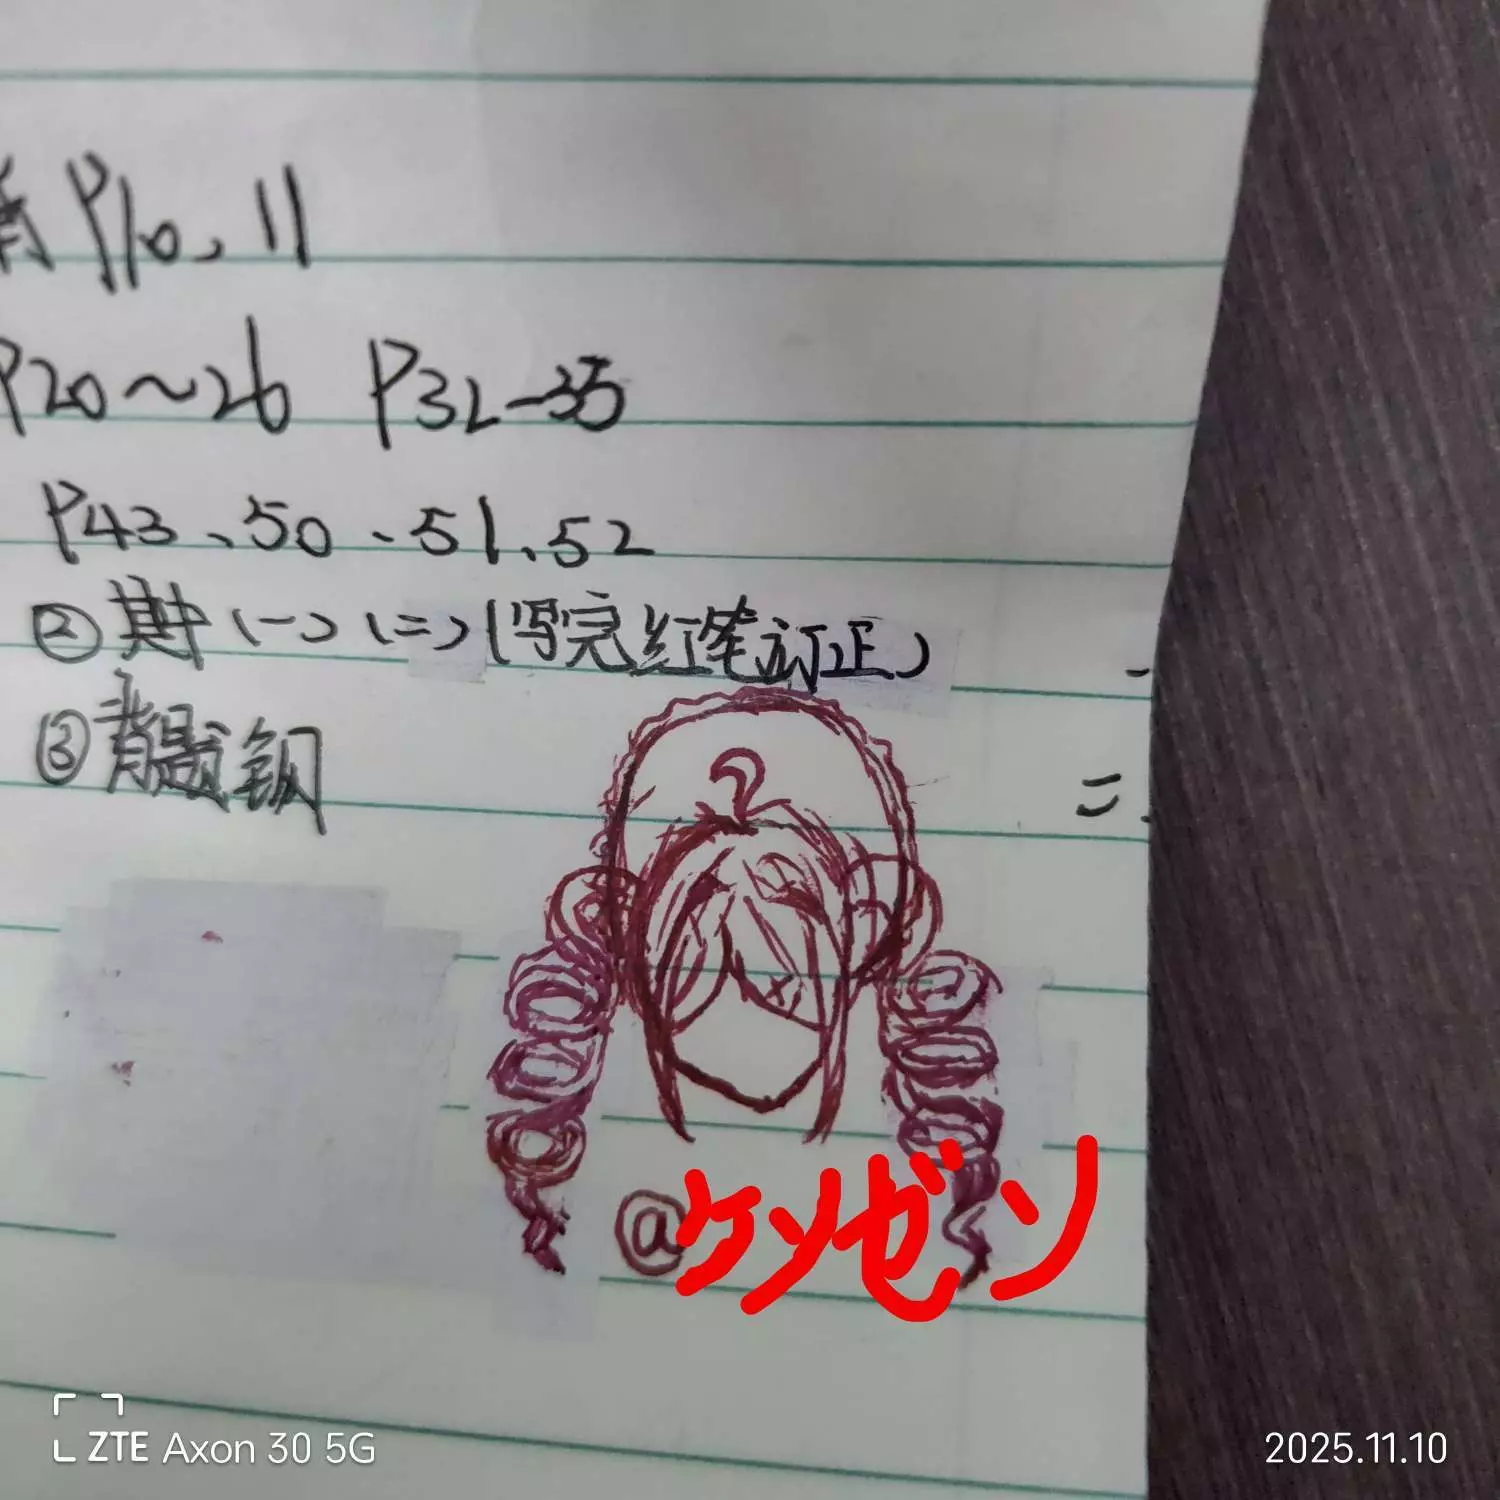 背 P10、11
P20~26 P32-35
P43、50、51、52
② 期中(一)(二)(写完红笔订正)
③ 背题纲
二
@ケンゼン
ZTE Axon 30 5G
2025.11.10